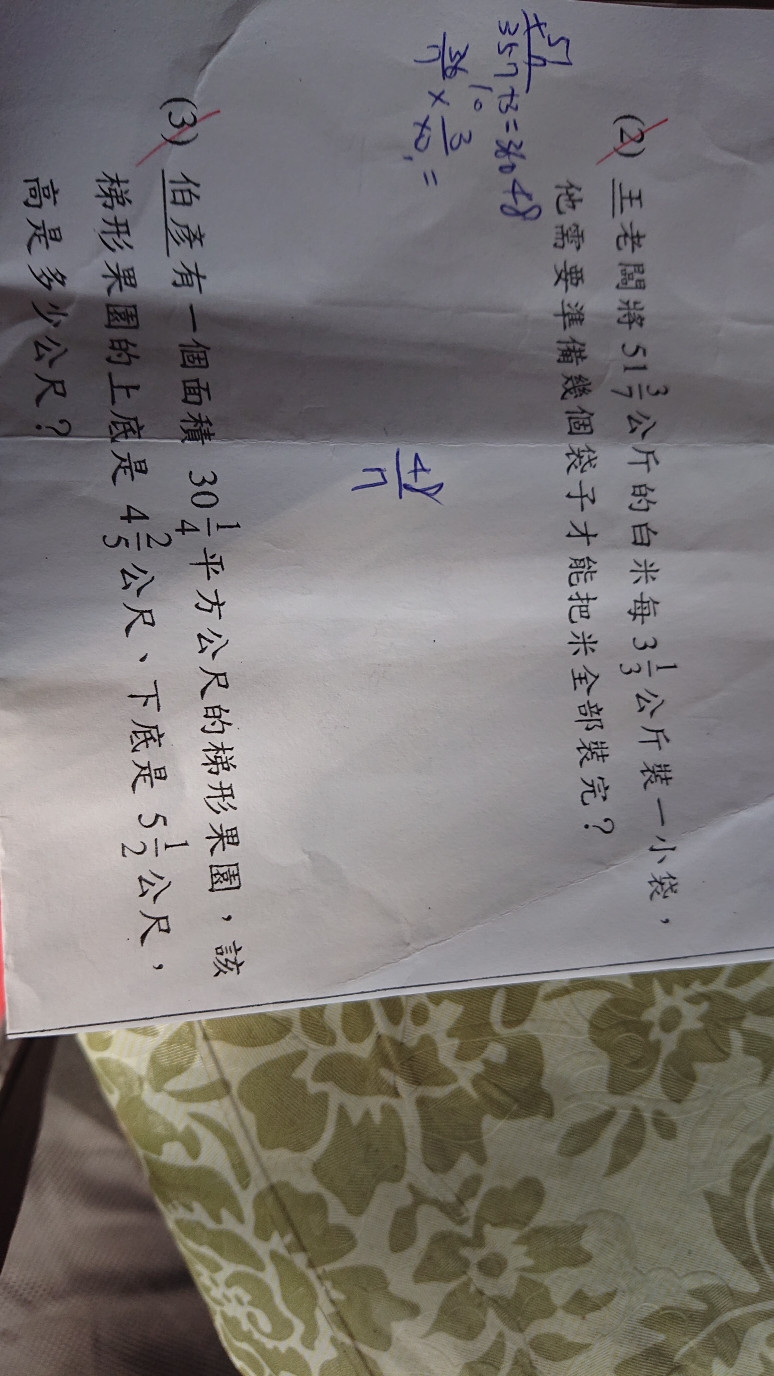 (2) 王老闆將 51 3/7 公斤的白米每 3 1/3 公斤裝一小袋，
他需要準備幾個袋子才能把米全部裝完？
51
357+3=360
48
(3) 伯彥有一個面積 30 1/4 平方公尺的梯形果園，該
梯形果園的上底是 4 2/5 公尺、下底是 5 1/2 公尺，
高是多少公尺？